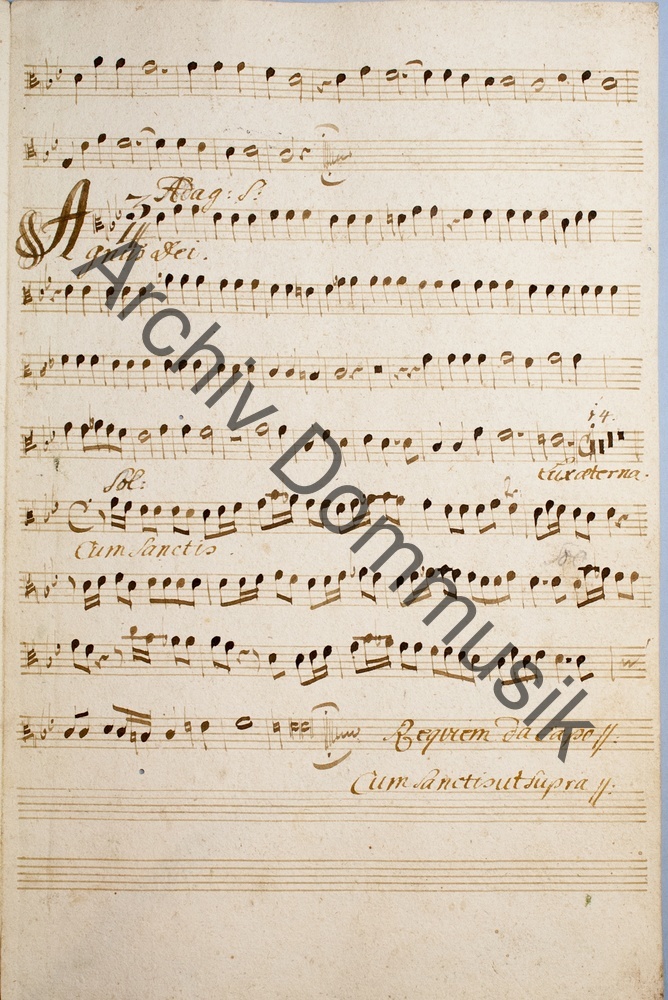 Adag: S:
Agnus Dei.
14.
Lux æterna.
Sol:
Cum Sanctis.
Requiem da Capo //:
Cum Sanctis ut supra //:
Archiv Dommusik